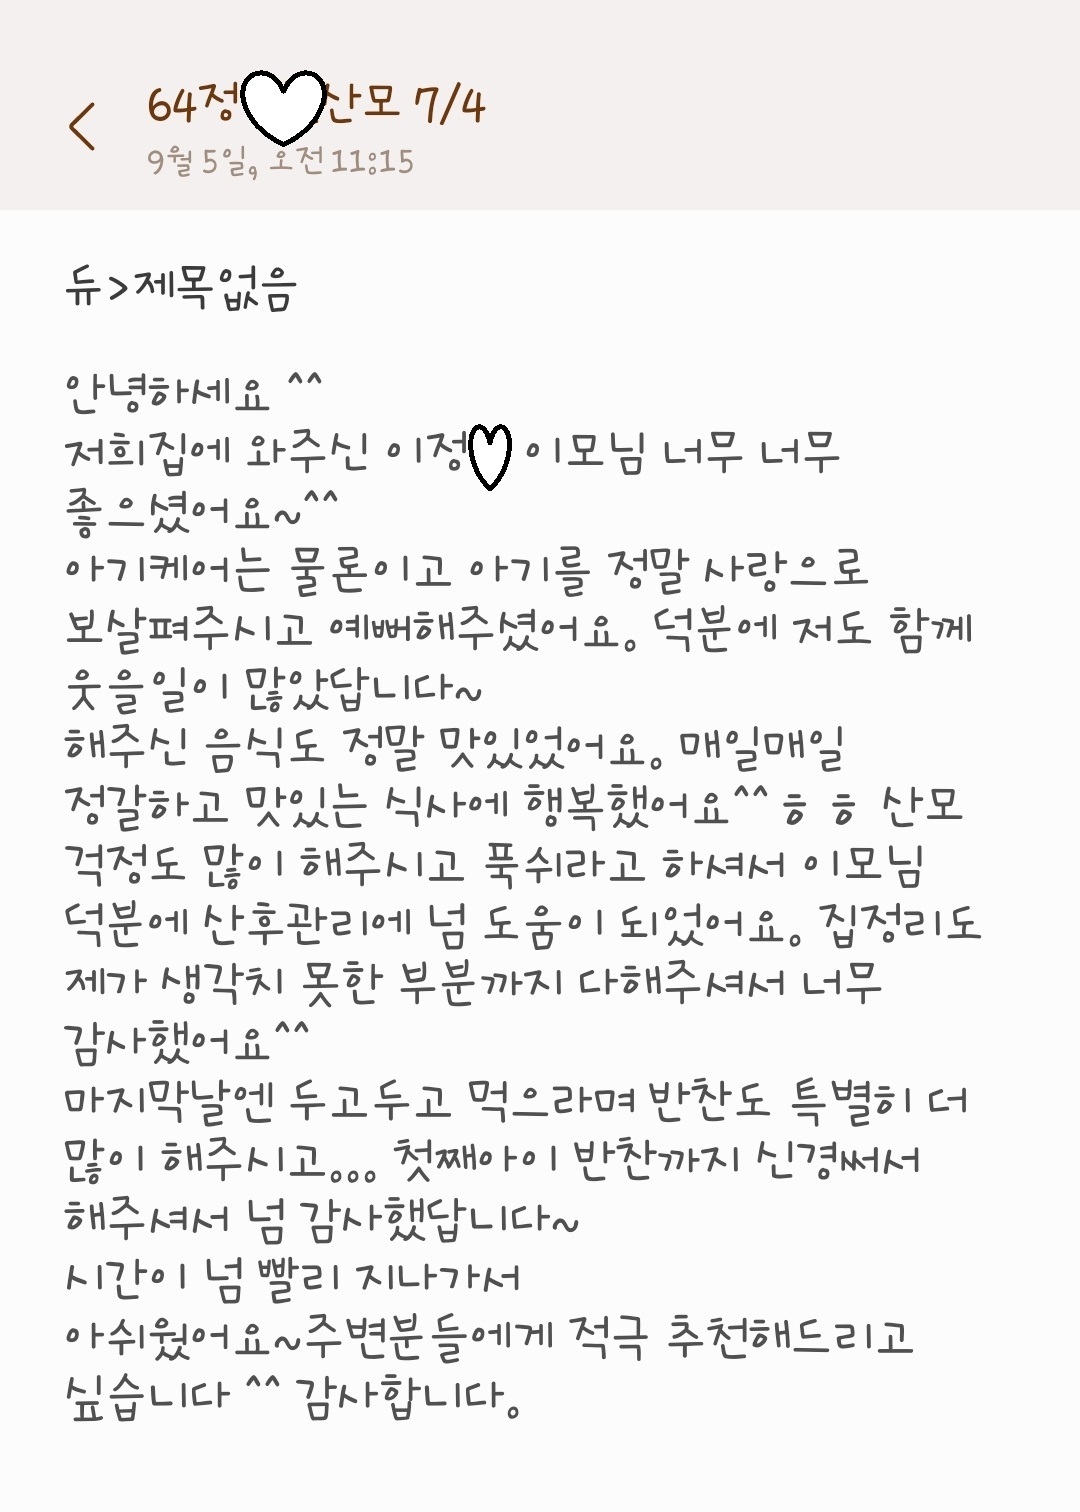 64정 산모 7/4
9월 5일, 오전 11:15
듀>제목없음
안녕하세요 ^^
저희집에 와주신 이정 이모님 너무 너무
좋으셨어요~^^
아기케어는 물론이고 아기를 정말 사랑으로
보살펴주시고 예뻐해주셨어요. 덕분에 저도 함께
웃을일이 많았답니다~
해주신 음식도 정말 맛있었어요. 매일매일
정갈하고 맛있는 식사에 행복했어요^^ㅎㅎ 산모
걱정도 많이 해주시고 푹쉬라고 하셔서 이모님
덕분에 산후관리에 넘 도움이 되었어요. 집정리도
제가 생각치 못한 부분까지 다해주셔서 너무
감사했어요^^
마지막날엔 두고두고 먹으라며 반찬도 특별히 더
많이 해주시고... 첫째아이 반찬까지 신경써서
해주셔서 넘 감사했답니다~
시간이 넘 빨리 지나가서
아쉬웠어요~주변분들에게 적극 추천해드리고
싶습니다 ^^ 감사합니다.